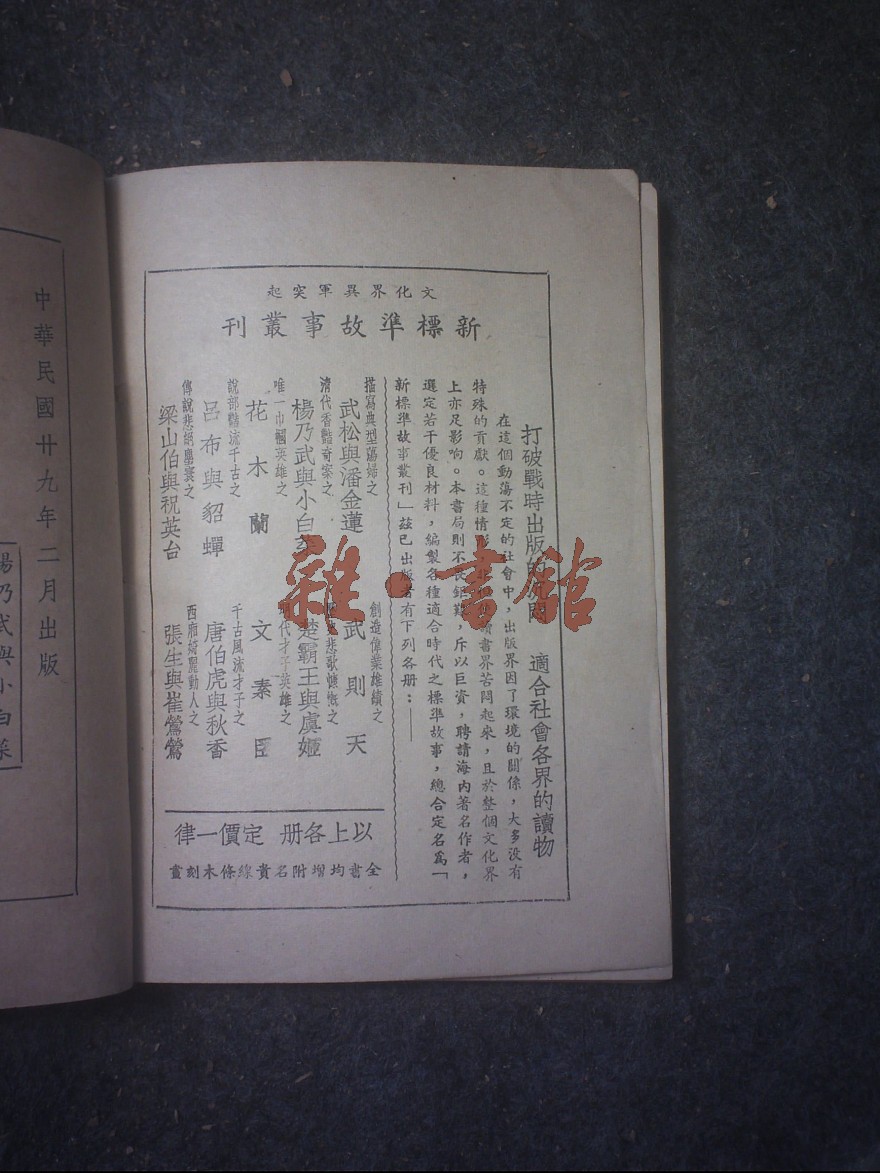 文化界異軍突起
新標準故事叢刊
打破戰時出版的 適合社會各界的讀物
在這個動蕩不定的社會中，出版界因了環境的關係，大多没有
特殊的貢獻。這種情 讀書界苦悶起來，且於整個文化界
上亦足影响。本書局則不畏鉅艱，斥以巨資，聘請海內著名作者，
選定若干優良材料，編製各種適合時代之標準故事，總合定名爲「
新標準故事叢刊」茲已出版者有下列各册：——
描寫典型蕩婦之
武松與潘金蓮
清代香豔奇案之
楊乃武與小白菜
唯一巾幗英雄之
花木蘭
說部豔流千古之
呂布與貂蟬
傳說悲絕塵寰之
梁山伯與祝英台
創造偉業雄績之
武則天
悲歌慷慨之
楚霸王與虞姬
代才子英雄之
文素臣
千古風流才子之
唐伯虎與秋香
西廂綺麗動人之
張生與崔鶯鶯
以上各册 定價一律
全書均增附名貴線條木刻畫
中華民國廿九年二月出版
楊乃武與小白菜
雜·書館